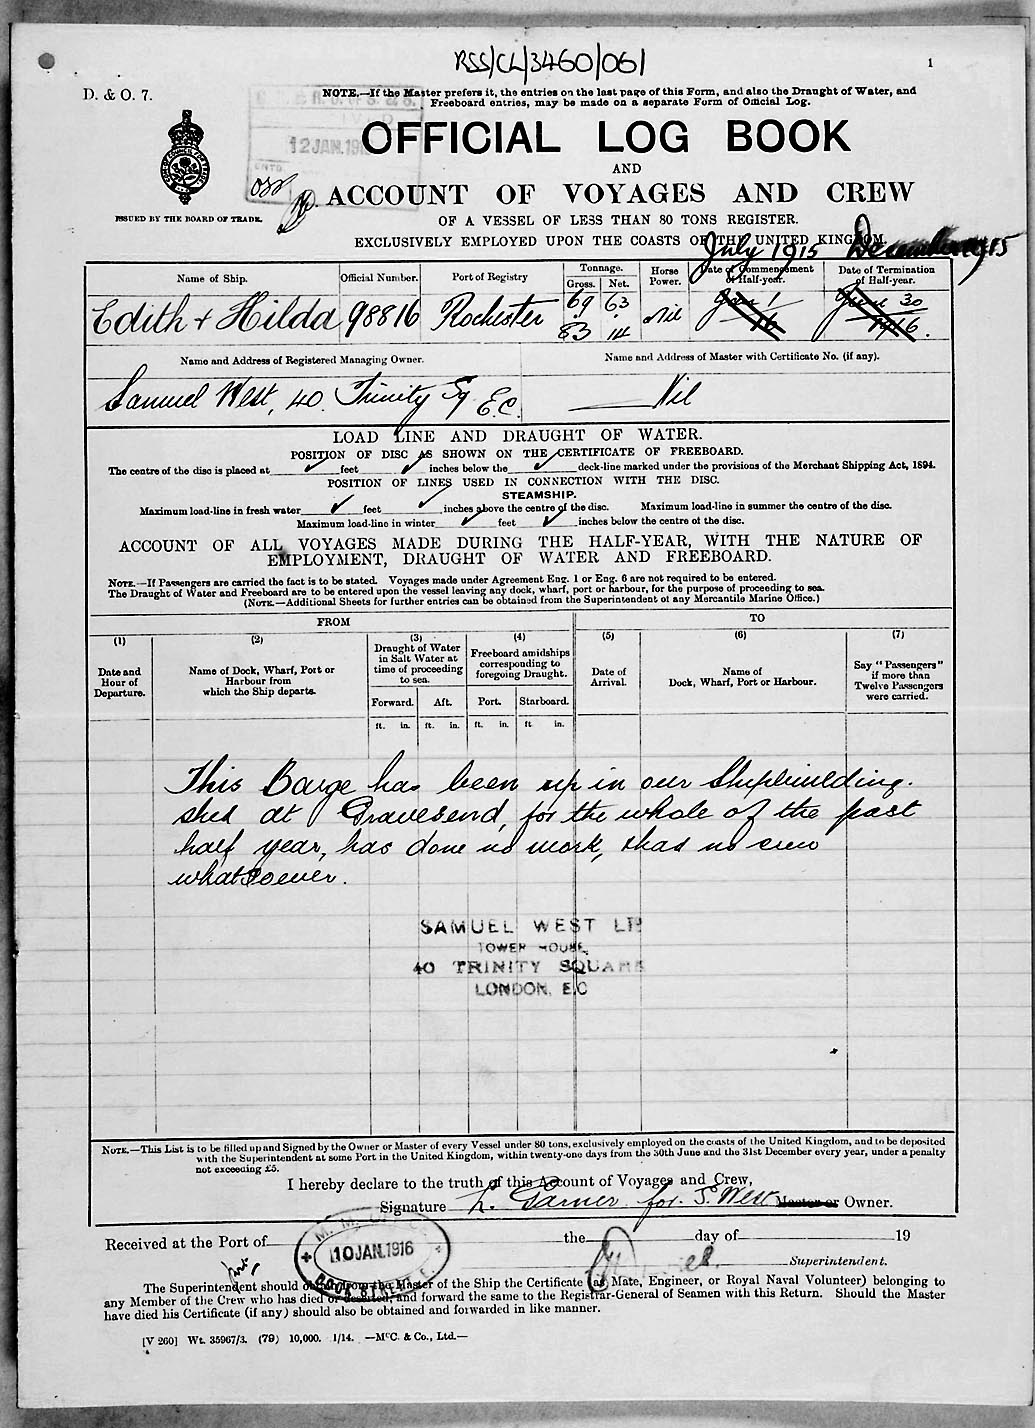 RSS/CL/3460/061
1
D. & O. 7.
NOTE.—If the Master prefers it, the entries on the last page of this Form, and also the Draught of Water, and
Freeboard entries, may be made on a separate Form of Official Log.
12 JAN. 191
OFFICIAL LOG BOOK
AND
ACCOUNT OF VOYAGES AND CREW
ISSUED BY THE BOARD OF TRADE.
OF A VESSEL OF LESS THAN 80 TONS REGISTER.
EXCLUSIVELY EMPLOYED UPON THE COASTS OF THE UNITED KINGDOM.
July 1915 December 1915
Name of Ship. Official Number. Port of Registry Tonnage. Gross. Net. Horse Power. Date of Commencement of Half-year. Date of Termination of Half-year.
Edith & Hilda 98816 Rochester 69 63 Nil Jan 1 June 30
83 14 16 1916.
Name and Address of Registered Managing Owner. Name and Address of Master with Certificate No. (if any).
Samuel West, 40 Trinity Sq E.C. Nil
LOAD LINE AND DRAUGHT OF WATER.
POSITION OF DISC AS SHOWN ON THE CERTIFICATE OF FREEBOARD.
The centre of the disc is placed at feet inches below the deck-line marked under the provisions of the Merchant Shipping Act, 1894.
POSITION OF LINES USED IN CONNECTION WITH THE DISC.
STEAMSHIP.
Maximum load-line in fresh water feet inches above the centre of the disc. Maximum load-line in summer the centre of the disc.
Maximum load-line in winter feet inches below the centre of the disc.
ACCOUNT OF ALL VOYAGES MADE DURING THE HALF-YEAR, WITH THE NATURE OF
EMPLOYMENT, DRAUGHT OF WATER AND FREEBOARD.
NOTE.—If Passengers are carried the fact is to be stated. Voyages made under Agreement Eng. 1 or Eng. 6 are not required to be entered.
The Draught of Water and Freeboard are to be entered upon the vessel leaving any dock, wharf, port or harbour, for the purpose of proceeding to sea.
(NOTE.—Additional Sheets for further entries can be obtained from the Superintendent of any Mercantile Marine Office.)
FROM TO
(1) (2) (3) (4) (5) (6) (7)
Date and Hour of Departure. Name of Dock, Wharf, Port or Harbour from which the Ship departs. Draught of Water in Salt Water at time of proceeding to sea. Freeboard amidships corresponding to foregoing Draught. Date of Arrival. Name of Dock, Wharf, Port or Harbour. Say "Passengers" if more than Twelve Passengers were carried.
Forward. Aft. Port. Starboard.
ft. in. ft. in. ft. in. ft. in.
This Barge has been up in our Shipbuilding.
shed at Gravesend, for the whole of the past
half year, has done no work, & has no crew
whatsoever.
SAMUEL WEST LTD
TOWER HOUSE,
40 TRINITY SQUARE
LONDON, E.C
NOTE.—This List is to be filled up and Signed by the Owner or Master of every Vessel under 80 tons, exclusively employed on the coasts of the United Kingdom, and to be deposited
with the Superintendent at some Port in the United Kingdom, within twenty-one days from the 30th June and the 31st December every year, under a penalty
not exceeding £5.
I hereby declare to the truth of this Account of Voyages and Crew,
Signature L. Garner for S. West Master or Owner.
Received at the Port of the day of 19
10 JAN. 1916
Superintendent.
The Superintendent should obtain from the Master of the Ship the Certificate (as Mate, Engineer, or Royal Naval Volunteer) belonging to
any Member of the Crew who has died or deserted, and forward the same to the Registrar-General of Seamen with this Return. Should the Master
have died his Certificate (if any) should also be obtained and forwarded in like manner.
[V 260] Wt. 35967/3. (79) 10,000. 1/14. —McC. & Co., Ltd.—